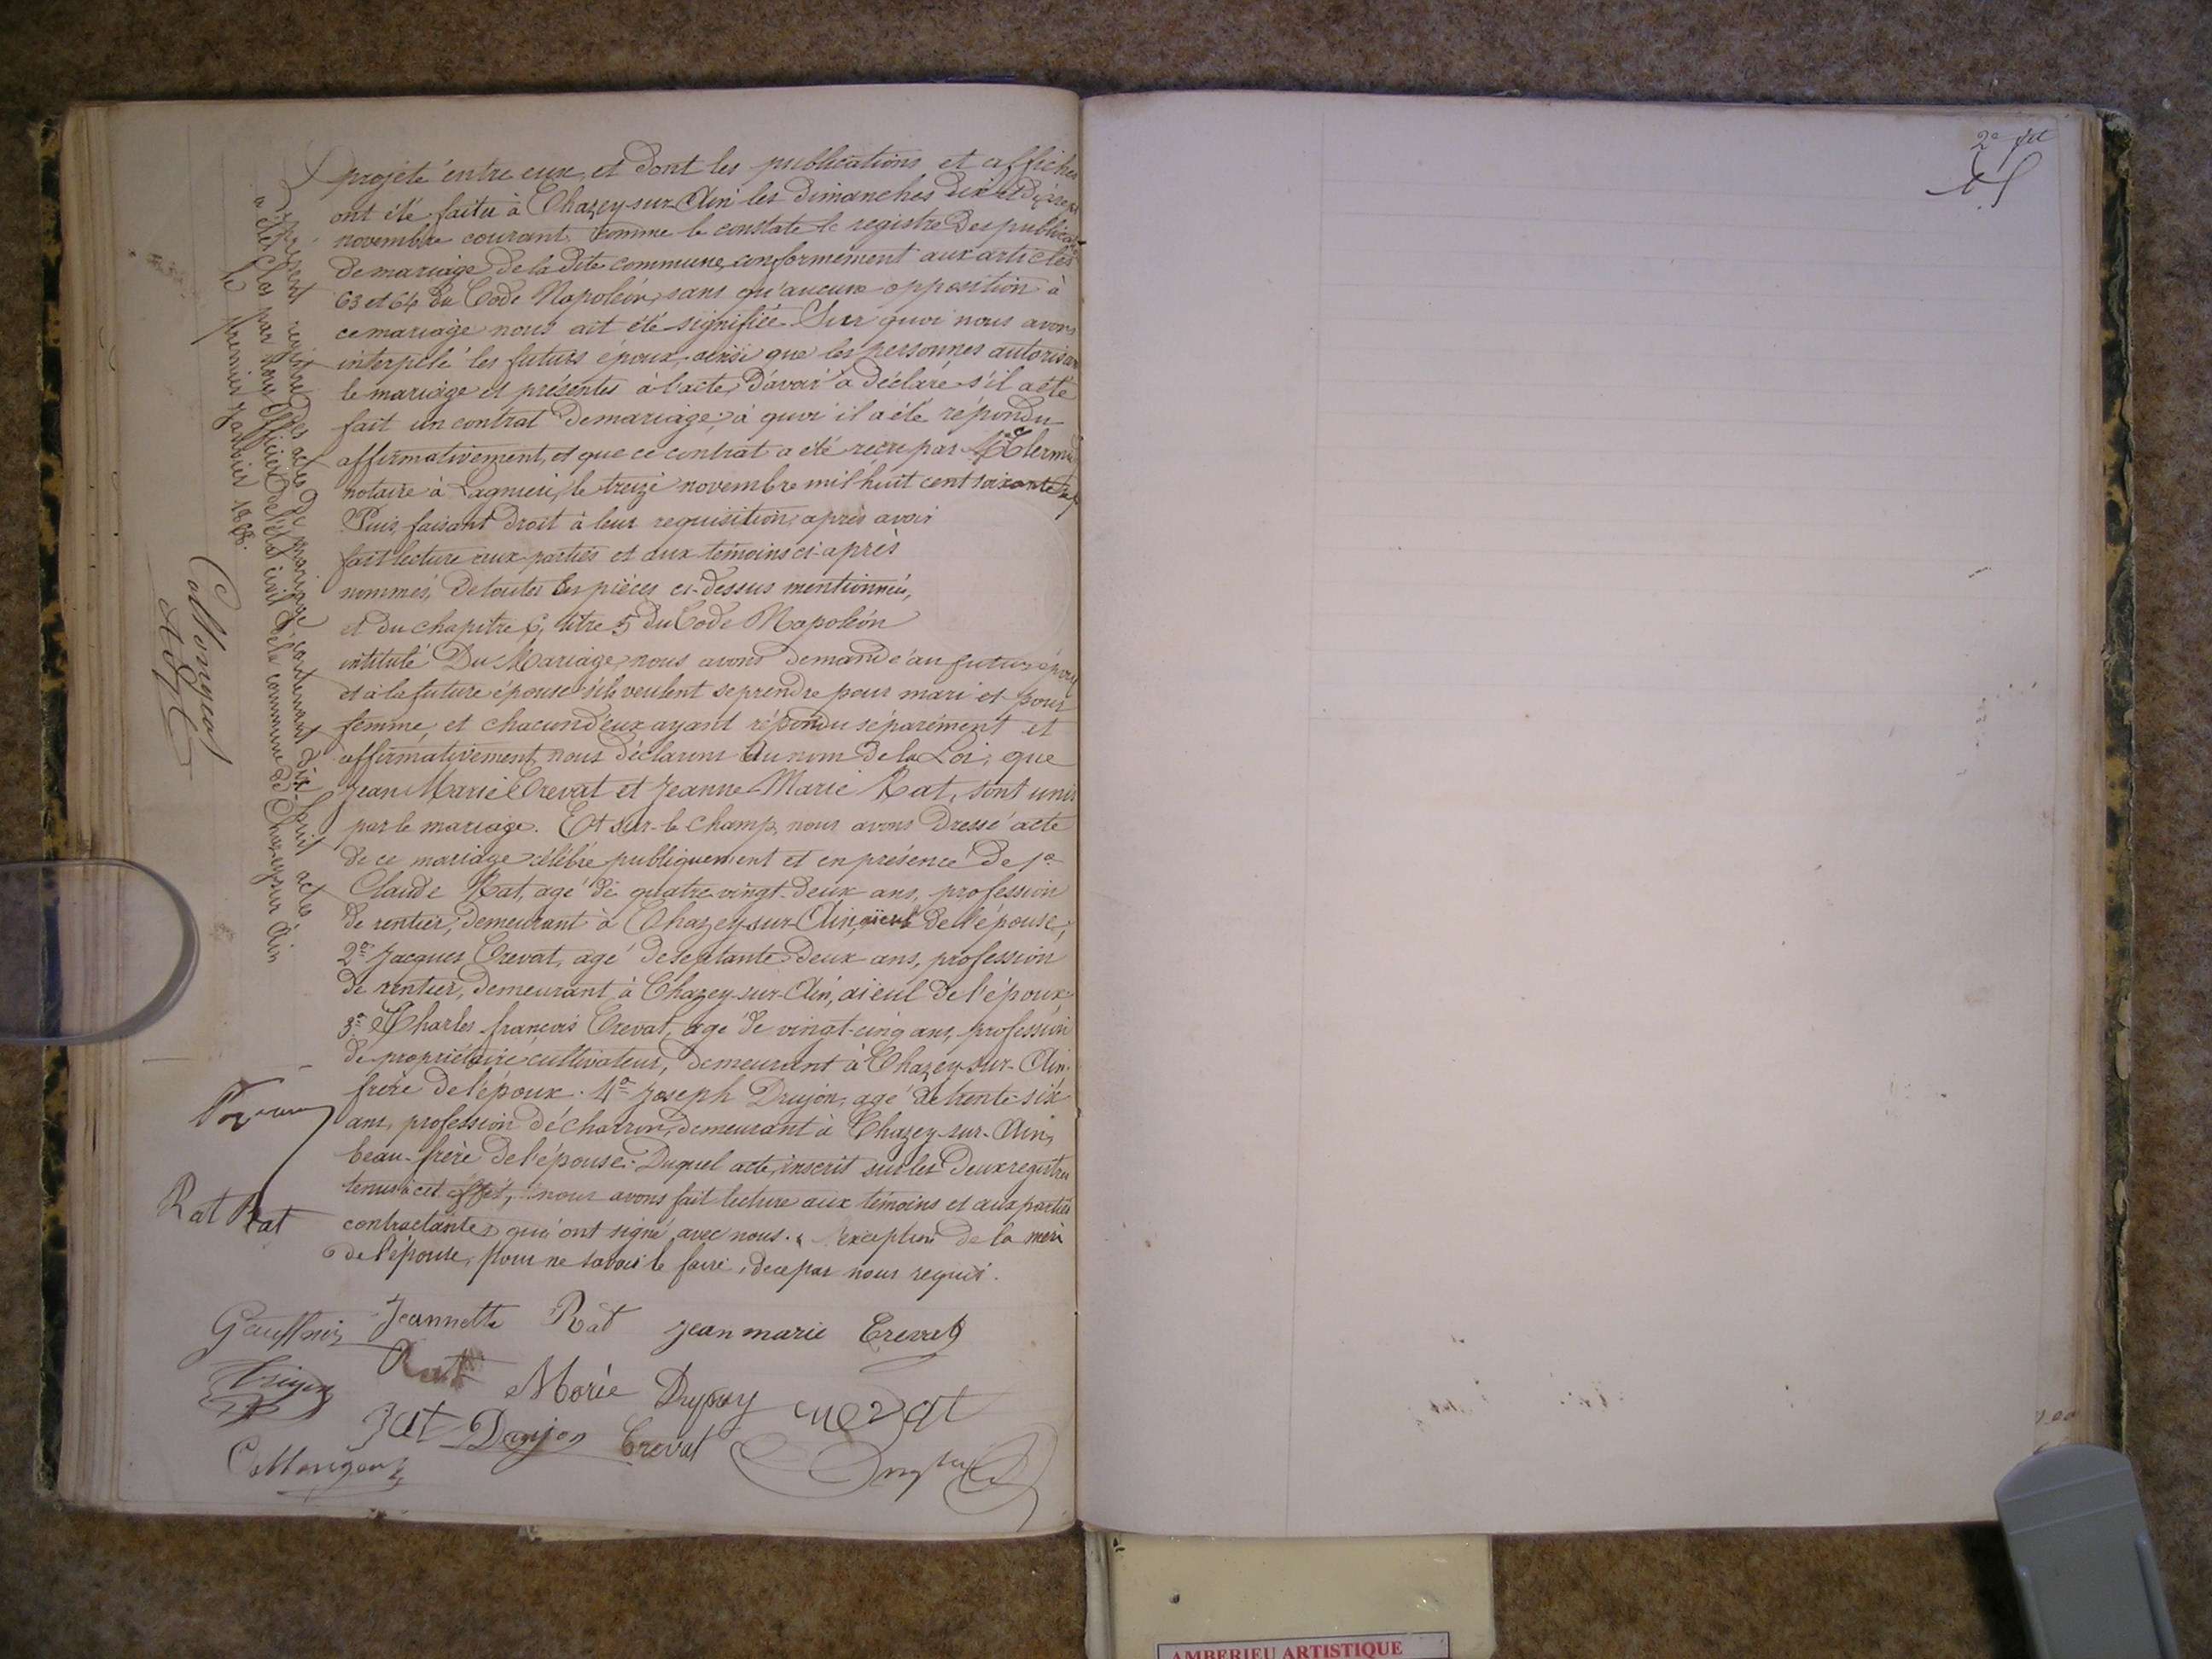 projeté entre eux, et dont les publications et affiches
ont été faites à Chazey-sur-Ain les dimanches dix et dix sept
novembre courant, comme le constate le registre des publica
de mariage de la dite commune, conformément aux articles
63 et 64 du Code Napoléon, sans qu'aucune opposition à
ce mariage nous ait été signifiée. Sur quoi nous avons
interpelé les futurs époux, ainsi que les personnes autorisan
le mariage et présentes à l'acte, d'avoir à déclaré s'il a été
fait un contrat de mariage, à quoi il a été répondu
affirmativement, et que ce contrat a été reçu par
notaire à Lagnieu, le treize novembre mil huit cent soixante sept
Puis, faisant droit à leur requisition, après avoir
fait lecture aux parties et aux témoins ci-après
nommés, de toutes les pièces ci-dessus mentionnées,
et du chapitre 6, titre 5 du Code Napoléon
intitulé Du Mariage, nous avons demandé au futur époux
et à la future épouse s'ils veulent se prendre pour mari et pour
femme, et chacun d'eux ayant répondu séparément et
affirmativement, nous déclarons Au nom de la Loi, que
Jean Marie Crevat et Jeanne-Marie Rat, sont unis
par le mariage. Et sur-le-champ, nous avons dressé acte
de ce mariage célébré publiquement et en présence de 1º
Claude Rat, agé de quatre-vingt-deux ans, profession
de rentier, demeurant à Chazey-sur-Ain, aieul de l'épouse,
2º Jacques Crevat, agé de septante-deux ans, profession
de rentier, demeurant à Chazey-sur-Ain, aieul de l'époux
3º Charles françois Crevat, agé de vingt-cinq ans, profession
de propriétaire cultivateur, demeurant à Chazey-sur-Ain.
frère de l'époux. 4º Joseph Drujon, agé de trente-six
ans, profession de charron, demeurant à Chazey-sur-Ain,
beau-frère de l'épouse. Duquel acte, inscrit sur les deux registres
tenus à cet effet, nous avons fait lecture aux témoins et aux parties
contractantes qui ont signé avec nous. exception de la mère
de l'épouse, pour ne savoir le faire, de ce par nous requis.
Rat Rat
Jeannette Rat jean marie Crevat
Rat Marie Dupuy
Drujon Crevat
Collongeat
Le présent registre des actes de mariage, contenant dix huit actes
a été clos par nous Officier de l'état civil de la commune de Chazey-sur-Ain
le premier Janvier 1868.
Collongeat
2e